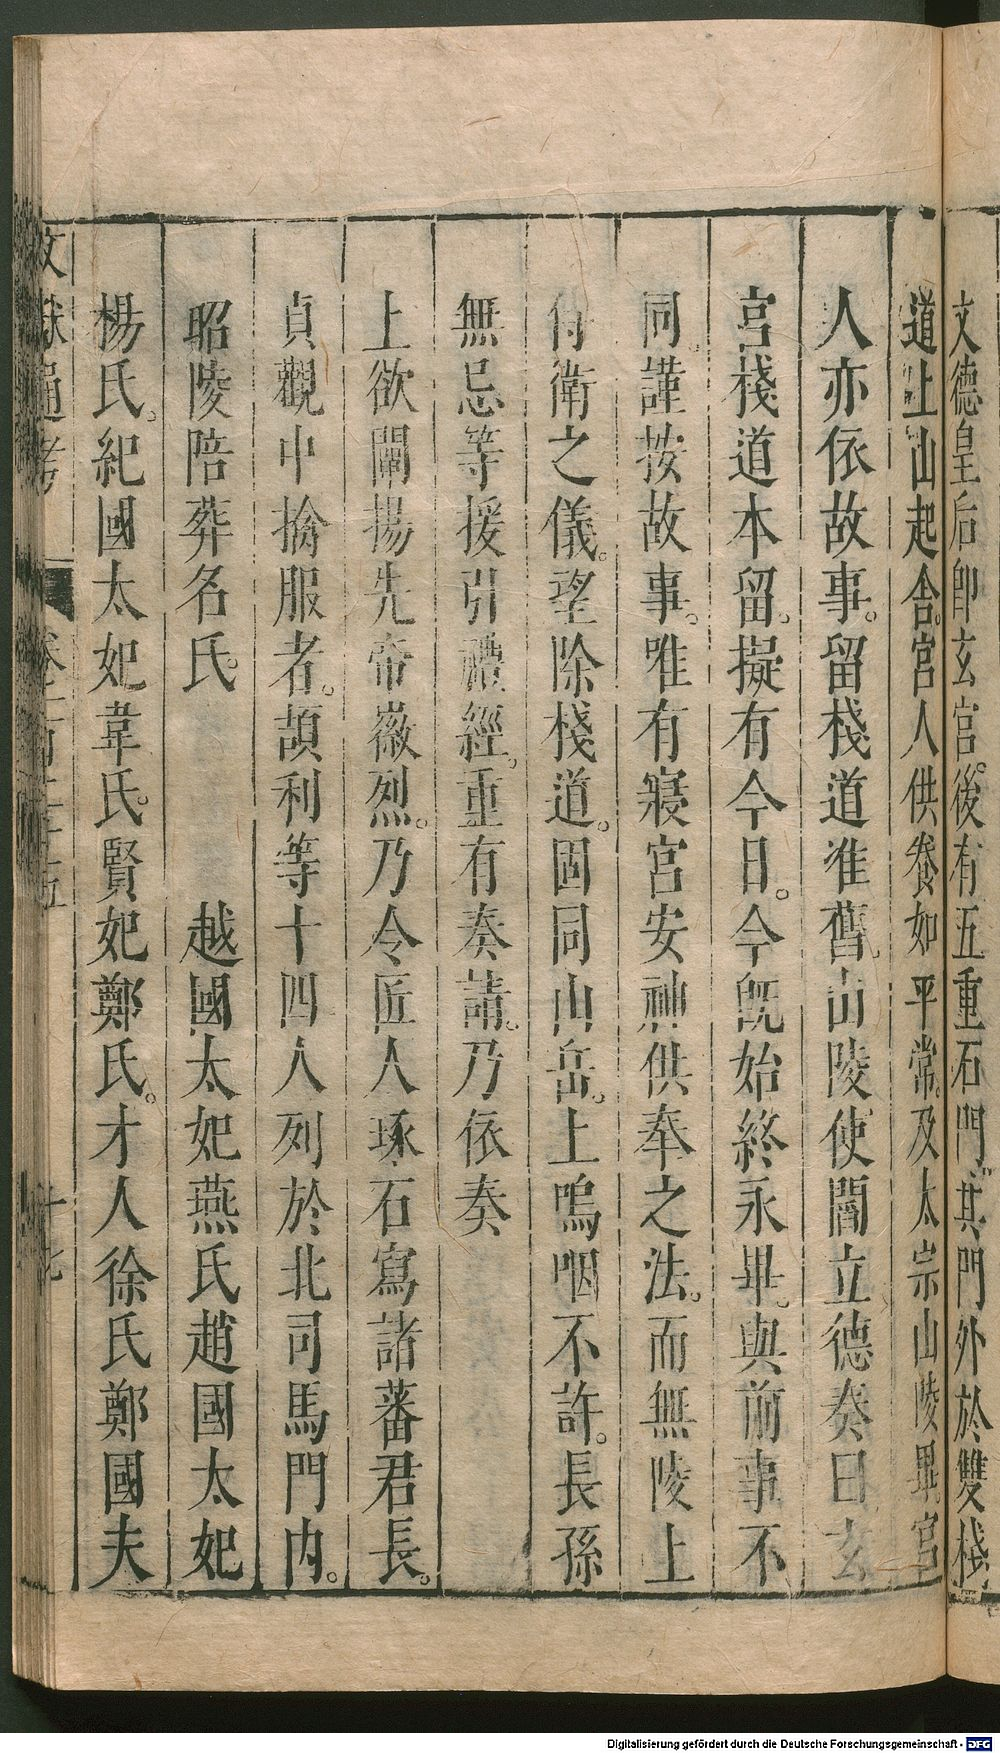 文德皇后即玄宮後有五重石門其門外於雙棧
道上山起舍。宮人供養如平常。及太宗山陵畢。宮
人亦依故事。留棧道准舊山陵使閻立德奏曰玄
宮棧道本留。擬有今日。今旣始終永畢。與前事不
同。謹按故事。唯有寢宮安神供奉之法。而無陵上
侍衛之儀。望除棧道。固同山岳。上嗚咽不許。長孫
無忌等援引禮經。重有奏請。乃依奏
上欲闡揚先帝徽烈。乃令匠人琢石寫諸蕃君長。
貞觀中擒服者。頡利等十四人列於北司馬門内。
昭陵陪葬名氏。　越國太妃燕氏趙國太妃
楊氏。紀國太妃韋氏。賢妃鄭氏。才人徐氏鄭國夫
文獻通考
卷一百二十五
十九
Digitalisierung gefördert durch die Deutsche Forschungsgemeinschaft - DFG